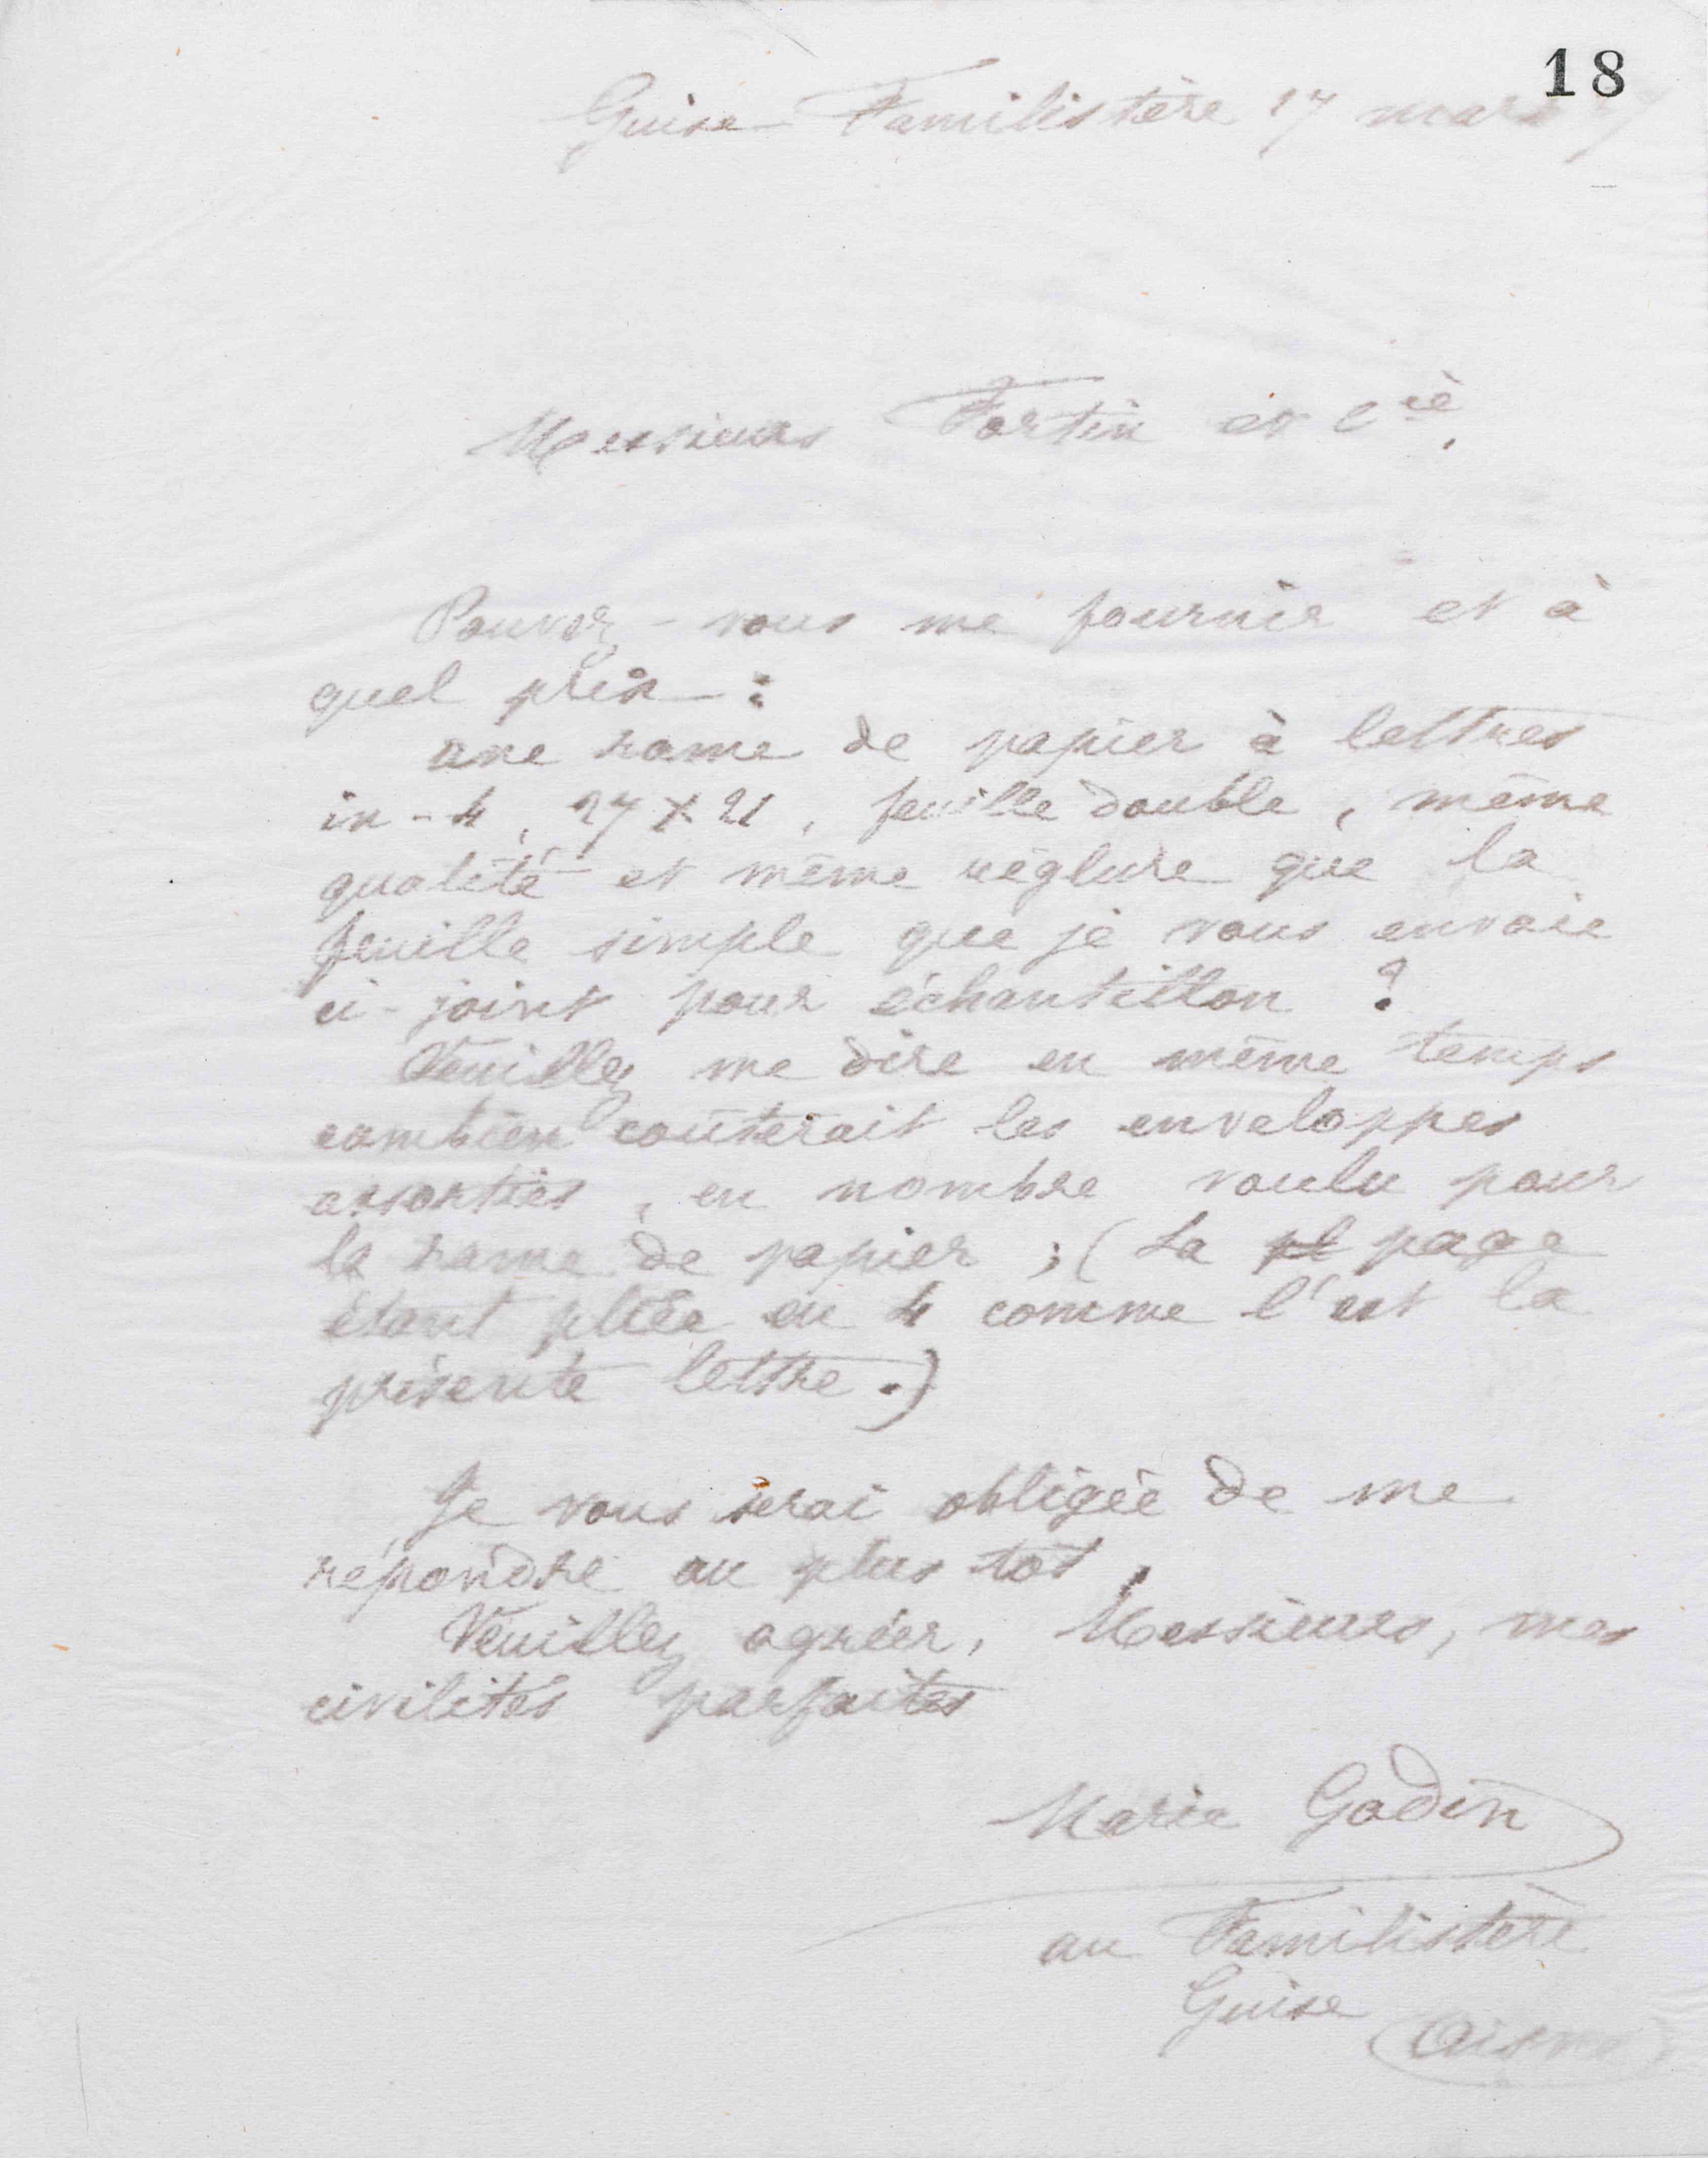 18
Guise Familistère 17 mars
Messieurs Fortin et Cie,
Pouvez-vous me fournir et à
quel prix :
une rame de papier à lettres
in-4, 27 x 21, feuille double, même
qualité et même réglure que la
feuille simple que je vous envoie
ci-joint pour échantillon ?
Veuillez me dire en même temps
combien coûterait les enveloppes
assorties, en nombre voulu pour
la rame de papier ; (La pl page
étant pliée en 4 comme l'est la
présente lettre.)
Je vous serai obligée de me
répondre au plus tôt.
Veuillez agréer, Messieurs, mes
civilités parfaites
Marie Godin
au Familistère
Guise (Aisne)